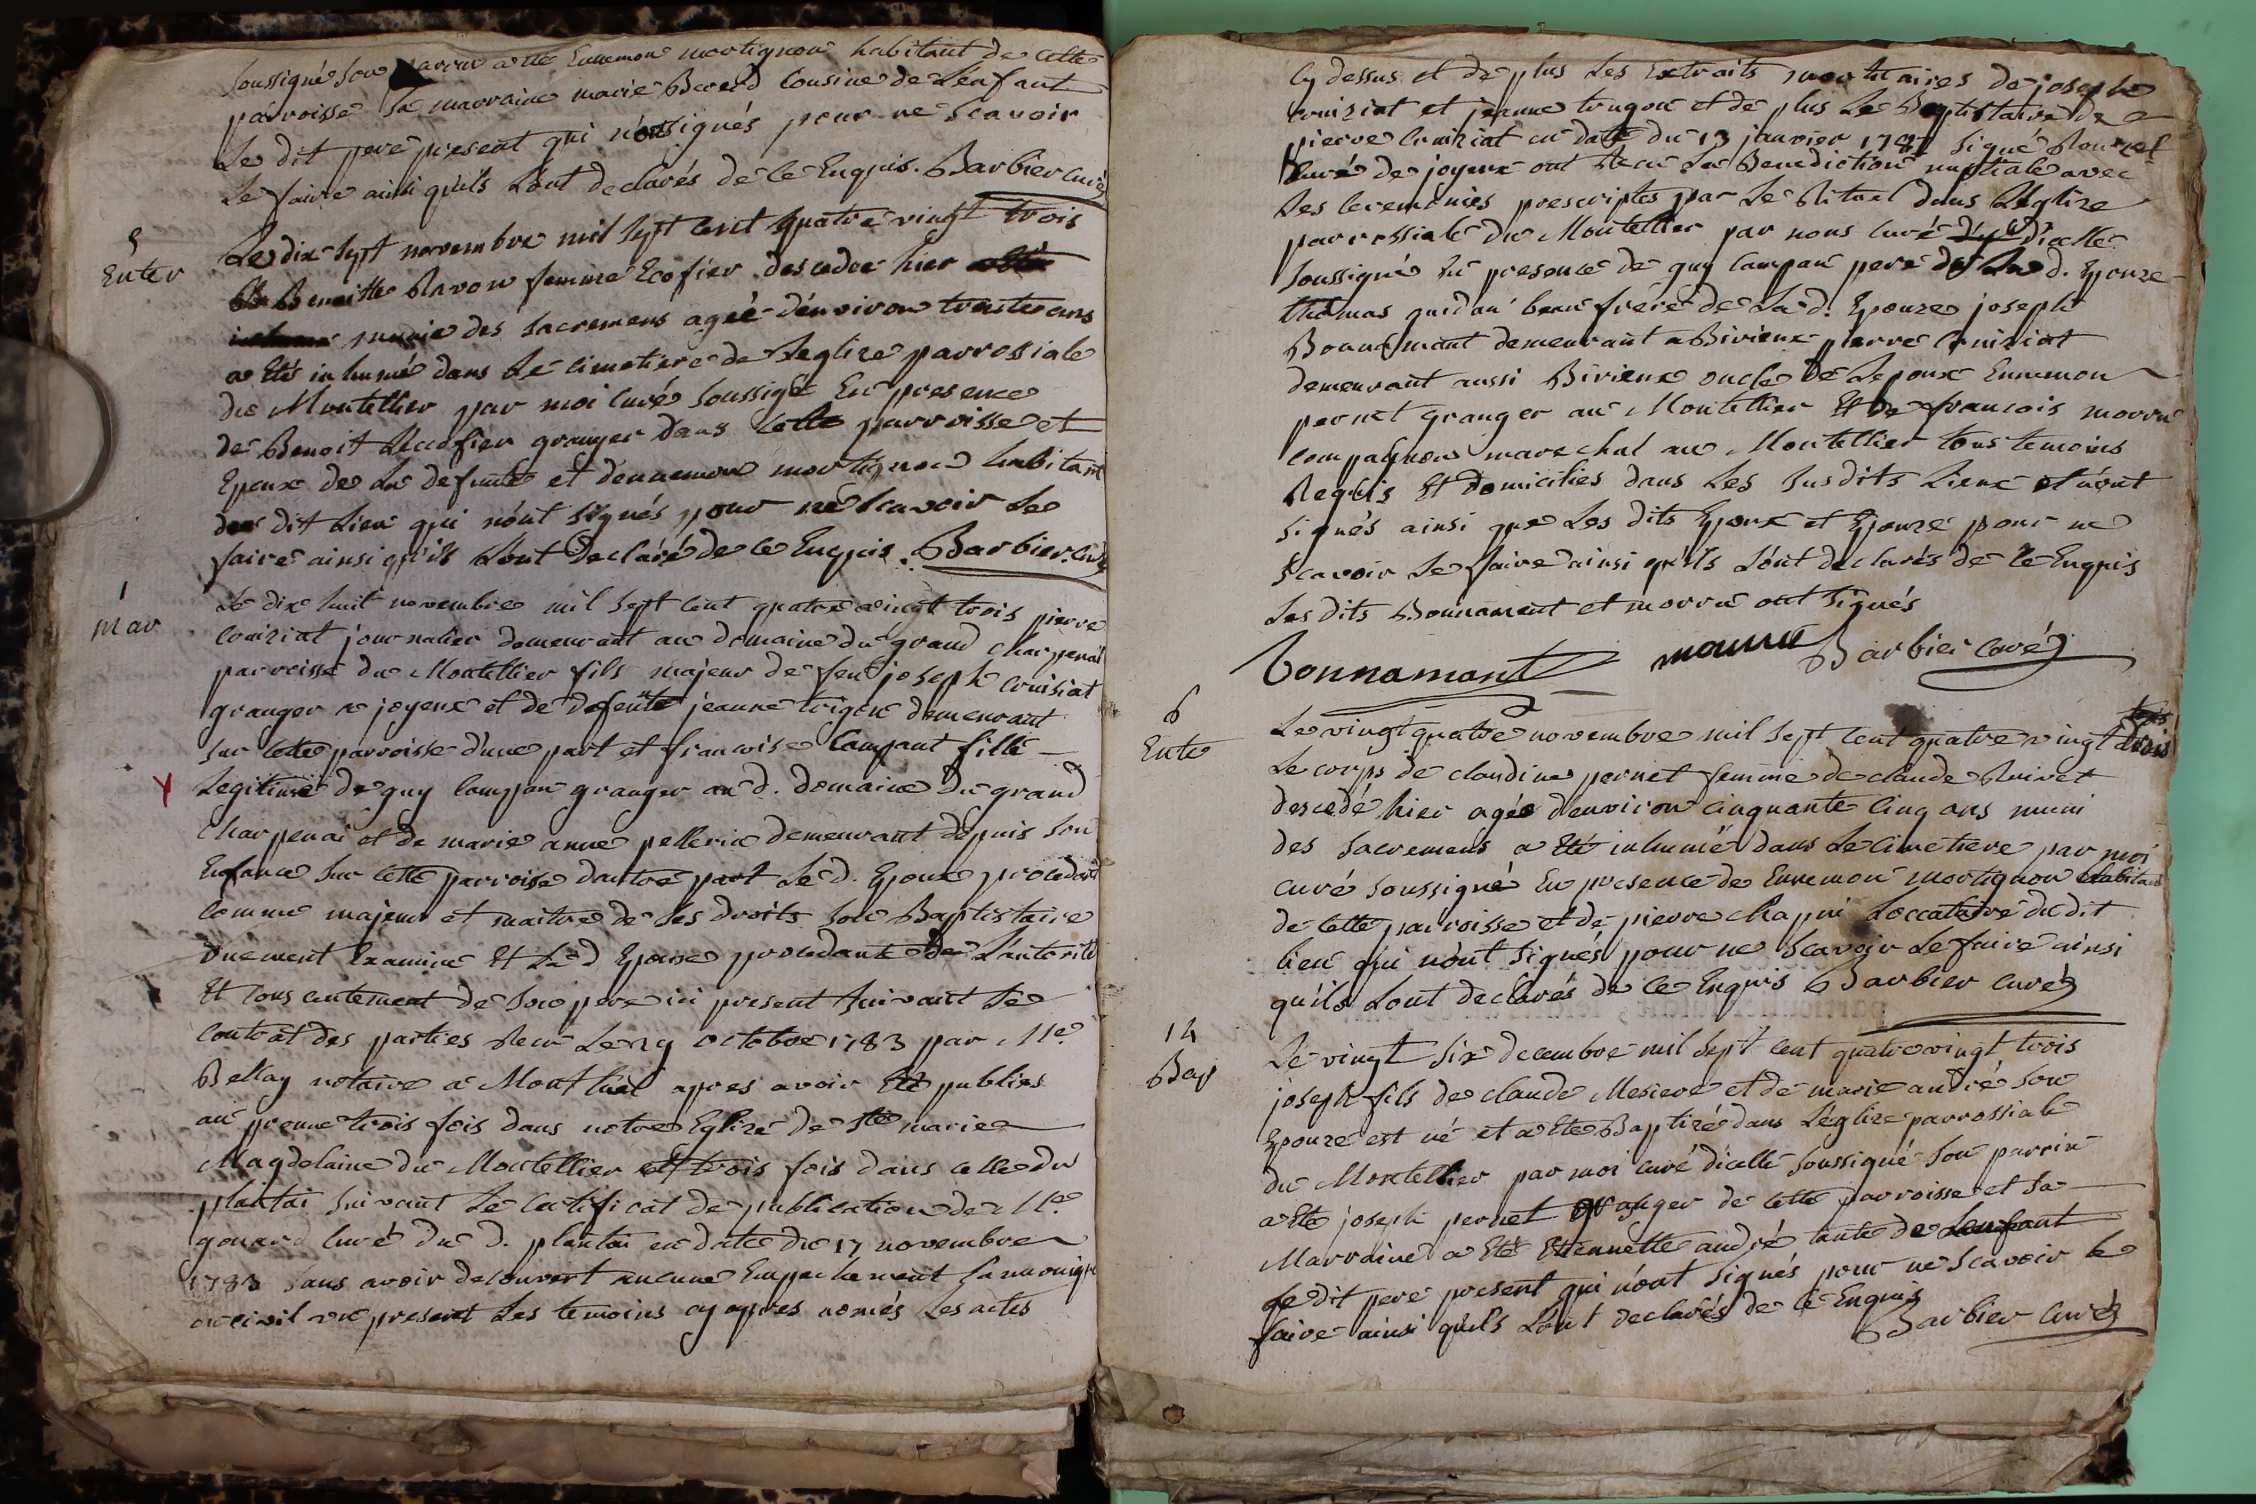 soussigné son parrin a ete Ennemon mortignon habitant de cette
parroisse sa marraine marie Bererd cousine de L'enfant
Le dit pere present qui n'ont signés pour ne scavoir
Le faire ainsi qu'ils L'ont declarés de ce Enquis. Barbier curé
5
Enter
Le dix sept novembre mil sept cent quatre vingt trois
Benoitte Ravon femme Ecofier descedee hier
munie des sacremens agée d'environ trente ans
a Etés inhumé dans Le cimetiere de Leglize parrossiale
du Montellier par moi curé soussigé En presence
de Benoit Lecofier granger dans cette parroisse et
Epoux de La defunte et d'ennemon mortignon habitant
du dit Lieu qui n'ont signés pour ne scavoir Le
faire ainsi qu'ils L'ont declaré de ce Enquis. Barbier curé
1
mar
Le dix huit novembre mil sept cent quatre vingt trois pierre
cruiziat journalier demeurant au domaine du grand charpenai
parroisse du Montellier fils majeur de feu joseph cruisiat
granger a joyeux et de defunte jeanne demeurant
sur cette parroisse d'une part et francoise Campant fille
Y
Legitime de guy campan granger au d. domaine du grand
charpenai et de marie anne pellerin demeurant depuis son
Enfance sur cette parroise d'autre part Le d. Epoux procedant
comme majeur et maitre de ses droits son Baptistaire
duement Examiné Et La d Epouse procedante de L'autorité
Et consentement de son pere ici present suivant Le
contrat des parties Recu Le 29 octobre 1783 par Me.
Bellay notaire a Montluel apres avoir Eté publiés
au prenne trois fois dans notre Eglize de Ste marie
Magdelaine du Montellier et trois fois dans celle du
plantai suivant Le certificat de publication de Me.
gouard curé du d. plantai en date du 17 novembre
1783 sans avoir decouvert aucune Empechement cannonique
ou civil vu present Les temoins cy apres només Les actes
cy dessus et de plus Les Extraits mortuaires de joseph
cruiziat et jeanne et de plus Le Baptistaire de
pierre cruiziat en date du 13 janvier signé
curé de joyeux ont Recu La Benediction nuptiale avec
Les ceremonies prescriptes par Le Rituel dans L'eglize
parrossiale du Montellier par nous curé d'icelle
soussigné En presence de guy campan pere de La d. Epouze
thomas beau frere de La d. Epouze joseph
Bonnamant demeurant a Birieux pierre Cruiziat
demeurant aussi Birieux oncle de Lepoux Ennemon
pernet granger au Montellier Et de francois morru
compagnon marechal au Montellier tous temoins
Requis Et domicilies dans Les susdits Lieux et n'ont
signés ainsi que Les dits Epoux et Epouze pour ne
scavoir Le faire ainsi qu'ils L'ont declarés de ce Enquis
Les dits Bonnament et morru ont signés
Bonnamant Barbier curé
6
Ente
Le vingt quatre novembre mil sept cent quatre vingt trois
Le corps de claudine pernet femme de claude Ruivet
descedé hier agée denviron cinquante cinq ans muni
des sacremens a Eté inhumé dans Le cimetiere par moi
curé soussigné En presence de Ennemon mortignon habitant
de cette parroisse et de pierre chapui Loccataire du dit
lieu qui n'ont signés pour ne scavoir Le faire ainsi
qu'ils L'ont declarés de ce Enquis Barbier curé
14
Bap
Le vingt six decembre mil sept cent quatre vingt trois
joseph fils de claude Mesiere et de marie andré son
Epouze est né et a Ete Baptizé dans L'eglize parrossiale
du Montellier par moi curé d'icelle soussigné son parrin
a Ete joseph pernet granger de cette parroisse et sa
Marraine a Eté Etiennette andré tante de Lenfant
Le dit pere present qui n'ont signés pour ne scavoir Le
faire ainsi qu'ils L'ont declarés de ce Enquis
Barbier curé